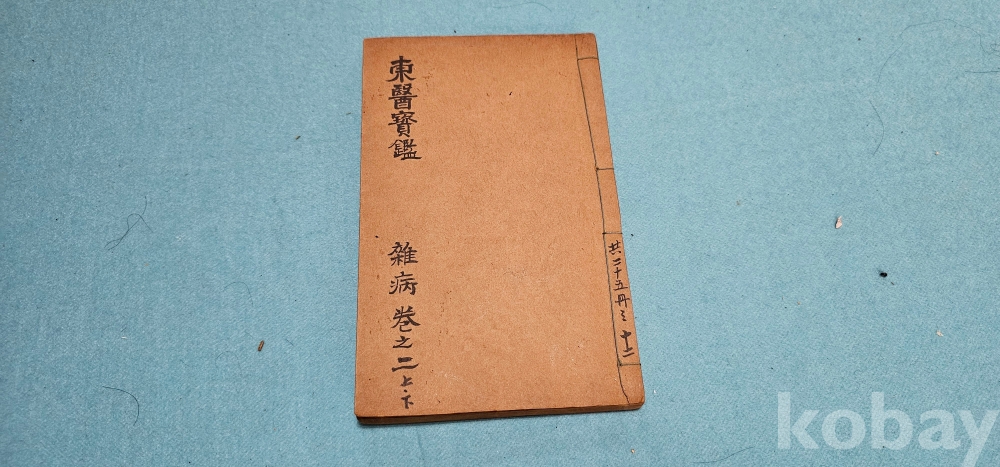 東醫寶鑑
雜病 卷之二 上·下
共二十五冊之 十二
kobay